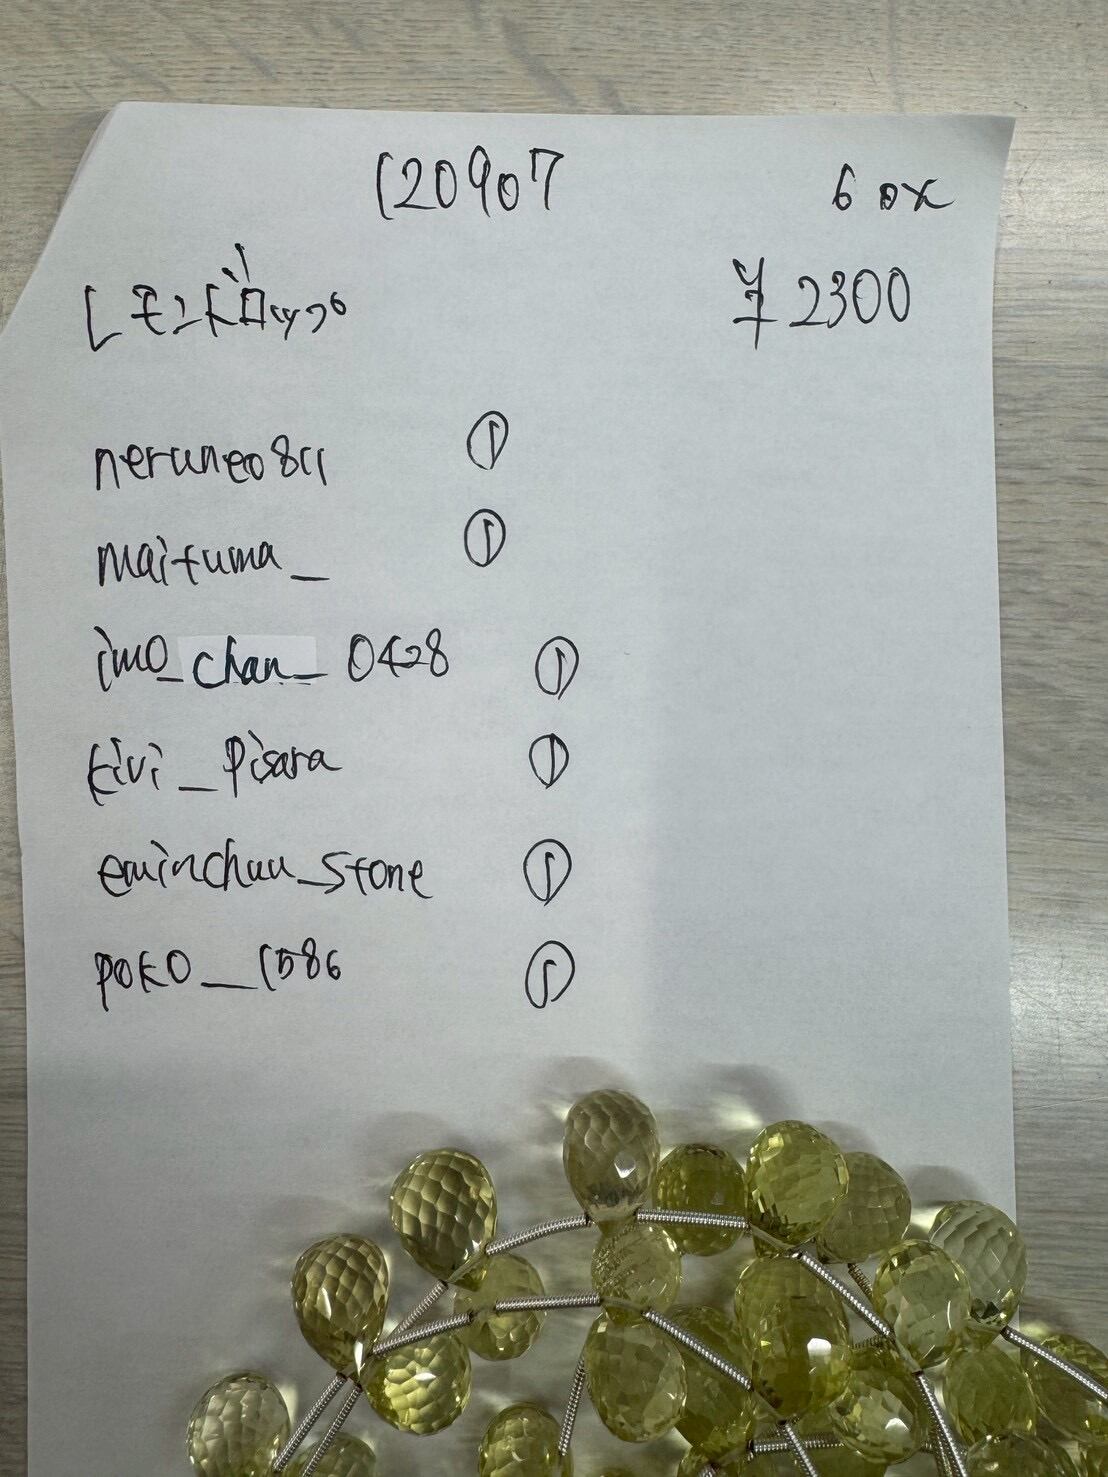 120907
6 ox
レモンドロップ
¥2300
neruneo811 ①
maituma_ ①
imo_chan_0428 ①
kivi_pisara ①
eminchuu_stone ①
poko_1586 ①